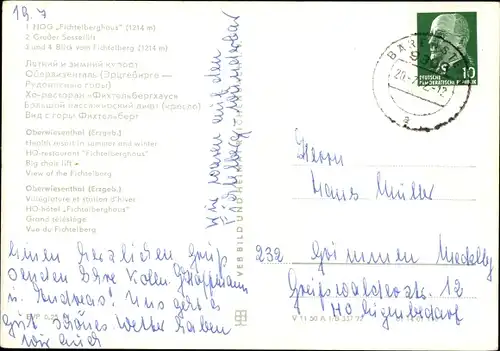 19.7
1 HOG „Fichtelberghaus" (1214 m)
2 Großer Sessellift
3 und 4 Blick vom Fichtelberg (1214 m)
Летний и зимний курорт
Обервизенталь (Эрцгебирге —
Рудоносные горы)
Хо-ресторан «Фихтельбергхаус»
Большой пассажирский лифт (кресло)
Вид с горы Фихтельберг
Oberwiesenthal (Erzgeb.)
Health resort in summer and winter
HO-restaurant "Fichtelberghaus"
Big chair lift
View of the Fichtelberg
Oberwiesenthal (Erzgeb.)
Villégiature et station d'hiver
HO-hôtel „Fichtelberghaus"
Grand télésiège
Vue du Fichtelberg
Einen herzlichen Gruß
senden Ihre Kolln.
u. Andreas! Uns geht es
gut schönes Wetter haben
wir auch
Wir waren auf dem
Fichtelberg wunderbar
VEB BILD UND HEIMAT REICHENBACH
DEUTSCHE
DEMOKRATISCHE REPUBLIK
10
Herrn
Hans Müller
232 Grimmen
Greifswalderstr. 12
HO